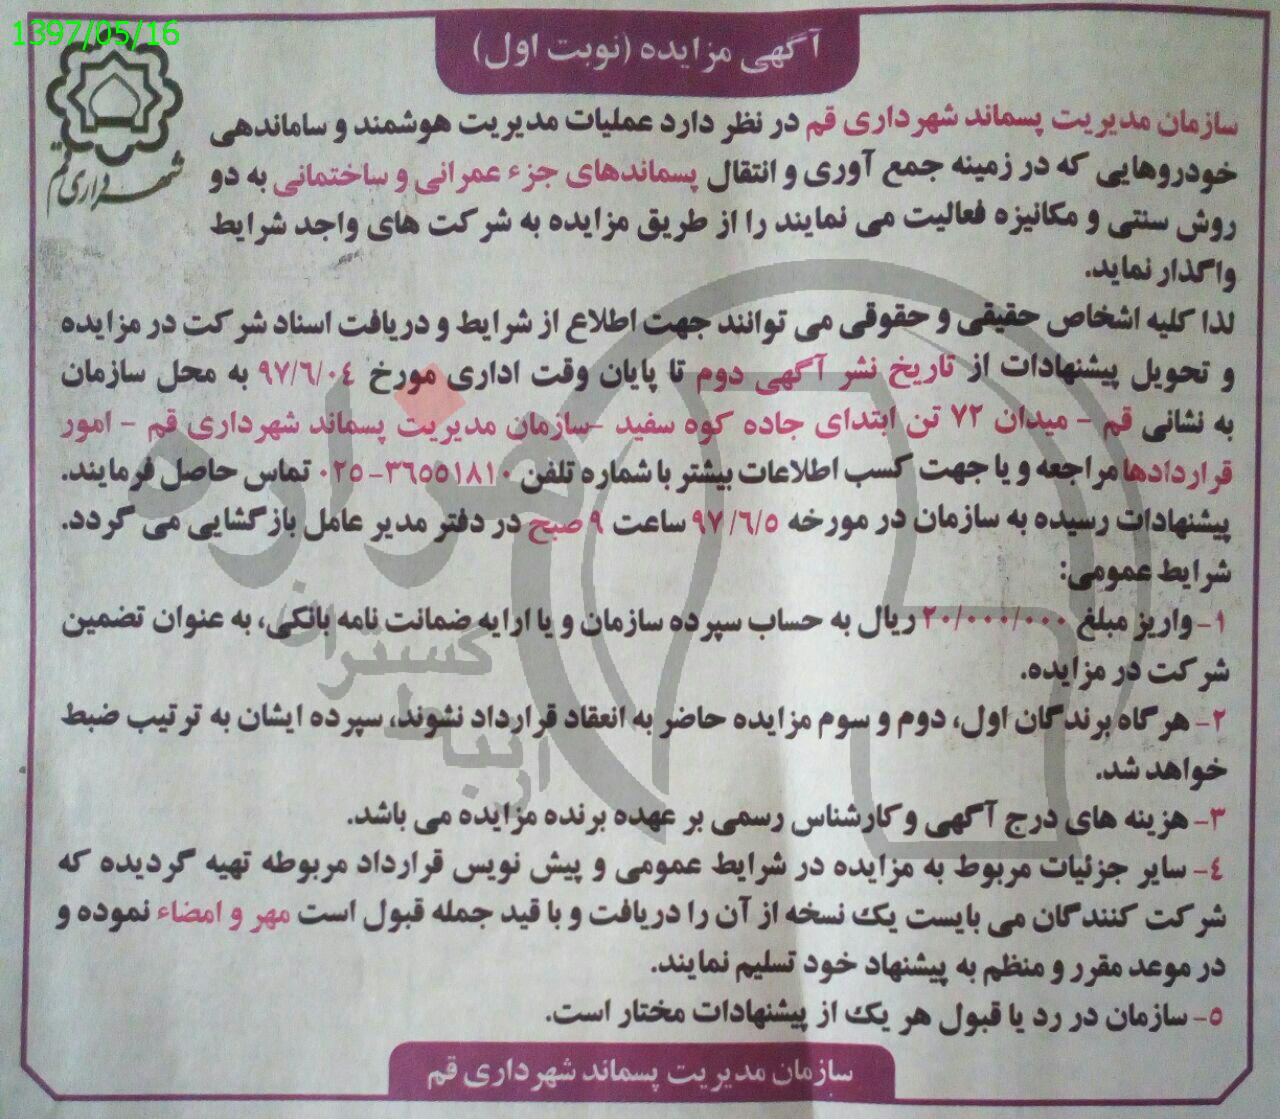 1397/05/16
آگهی مزایده (نوبت اول)
شهرداری قم
سازمان مدیریت پسماند شهرداری قم در نظر دارد عملیات مدیریت هوشمند و ساماندهی
خودروهایی که در زمینه جمع آوری و انتقال پسماندهای جزء عمرانی و ساختمانی به دو
روش سنتی و مکانیزه فعالیت می نمایند را از طریق مزایده به شرکت های واجد شرایط
واگذار نماید.
لذا کلیه اشخاص حقیقی و حقوقی می توانند جهت اطلاع از شرایط و دریافت اسناد شرکت در مزایده
و تحویل پیشنهادات از تاریخ نشر آگهی دوم تا پایان وقت اداری مورخ ۹۷/۶/۰۴ به محل سازمان
به نشانی قم - میدان ۷۲ تن ابتدای جاده کوه سفید -سازمان مدیریت پسماند شهرداری قم - امور
قراردادها مراجعه و یا جهت کسب اطلاعات بیشتر با شماره تلفن ۳۶۵۵۱۸۱۰-۰۲۵ تماس حاصل فرمایند.
پیشنهادات رسیده به سازمان در مورخه ۹۷/۶/۵ ساعت ۹ صبح در دفتر مدیر عامل بازگشایی می گردد.
شرایط عمومی:
۱- واریز مبلغ ۲۰/۰۰۰/۰۰۰ ریال به حساب سپرده سازمان و یا ارایه ضمانت نامه بانکی، به عنوان تضمین
شرکت در مزایده.
۲- هرگاه برندگان اول، دوم و سوم مزایده حاضر به انعقاد قرارداد نشوند، سپرده ایشان به ترتیب ضبط
خواهد شد.
۳- هزینه های درج آگهی و کارشناس رسمی بر عهده برنده مزایده می باشد.
٤- سایر جزئیات مربوط به مزایده در شرایط عمومی و پیش نویس قرارداد مربوطه تهیه گردیده که
شرکت کنندگان می بایست یک نسخه از آن را دریافت و با قید جمله قبول است مهر و امضاء نموده و
در موعد مقرر و منظم به پیشنهاد خود تسلیم نمایند.
۵- سازمان در رد یا قبول هر یک از پیشنهادات مختار است.
سازمان مدیریت پسماند شهرداری قم